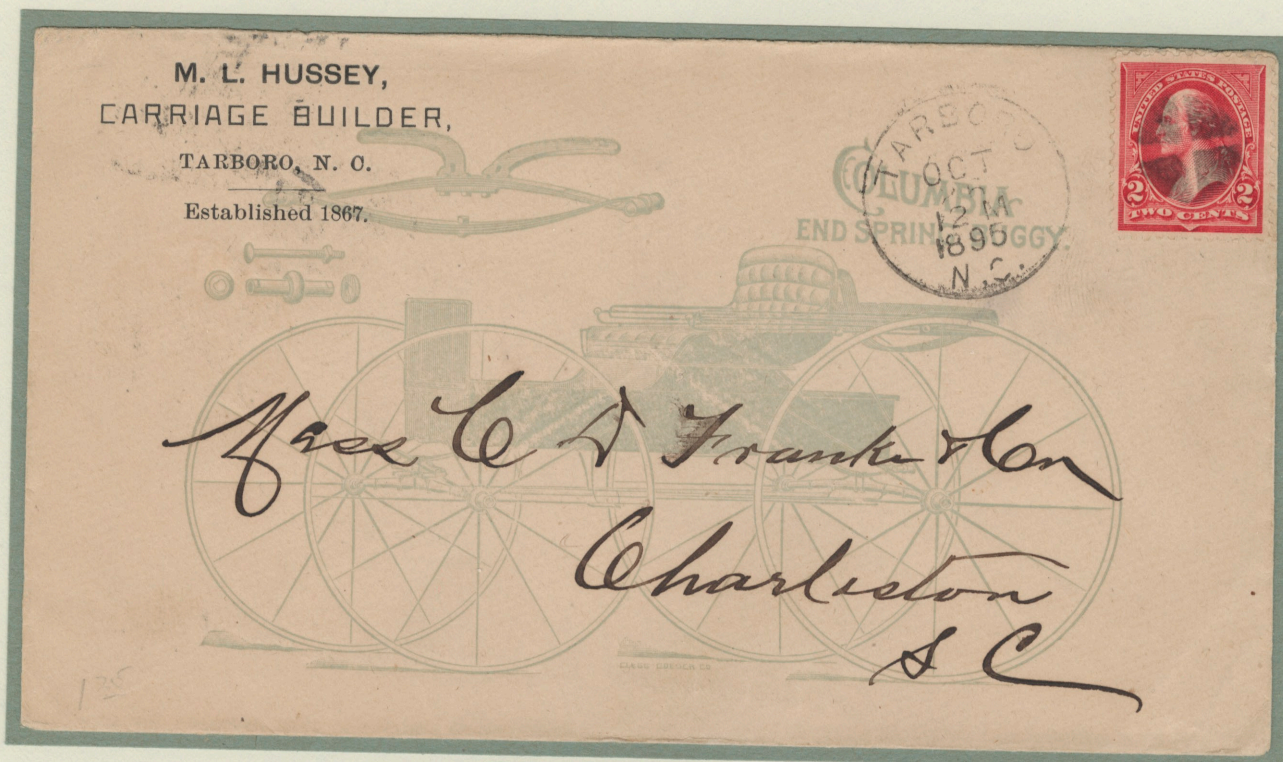 M. L. HUSSEY,
CARRIAGE BUILDER,
TARBORO, N. C.
Established 1867.
COLUMBIA
END SPRING BUGGY.
TARBORO
OCT
12 M
1895
N.C.
UNITED STATES POSTAGE
2 2
TWO CENTS
Mess C D Franke & Co
Charleston
S C